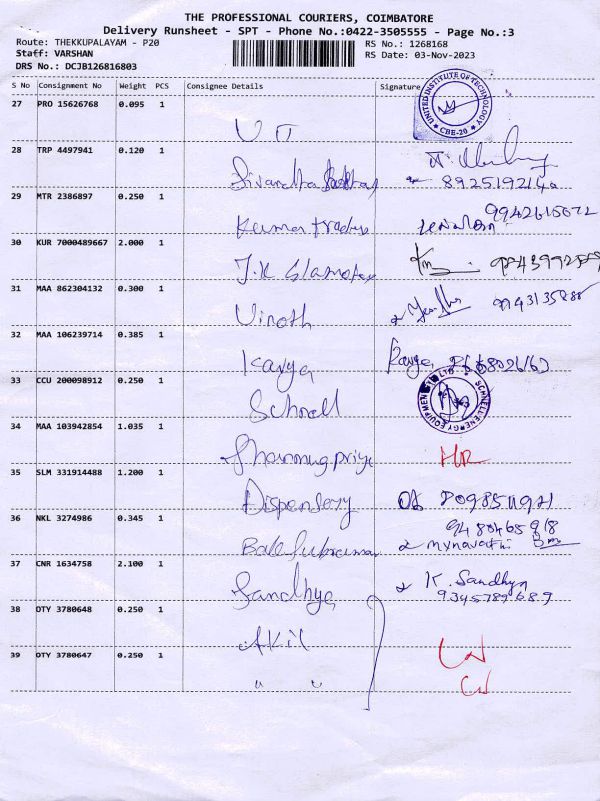 THE PROFESSIONAL COURIERS, COIMBATORE
Delivery Runsheet - SPT - Phone No.:0422-3505555 - Page No.:3
Route: THEKKUPALAYAM - P20 RS No.: 1268168
Staff: VARSHAN RS Date: 03-Nov-2023
DRS No.: DCJB126816803
S No Consignment No Weight PCS Consignee Details Signature
27 PRO 15626768 0.095 1
UNITED INSTITUTE OF TECHNOLOGY * CBE-20 *
28 TRP 4497941 0.120 1
29 MTR 2386897 0.250 1
Kumar traders
30 KUR 7000489667 2.000 1
J.K
31 MAA 862304132 0.300 1
Vinoth
32 MAA 106239714 0.385 1
Kavya Kavya
33 CCU 200098912 0.250 1
Schnell SCHNELL ENERGY EQUIPMENT LTD
34 MAA 103942854 1.035 1
Shanmug priya
35 SLM 331914488 1.200 1
Dispensery
36 NKL 3274986 0.345 1
Bala Subramani
37 CNR 1634758 2.100 1
Sandhya K. Sandhya
9345789689
38 OTY 3780648 0.250 1
Akil
39 OTY 3780647 0.250 1
" "